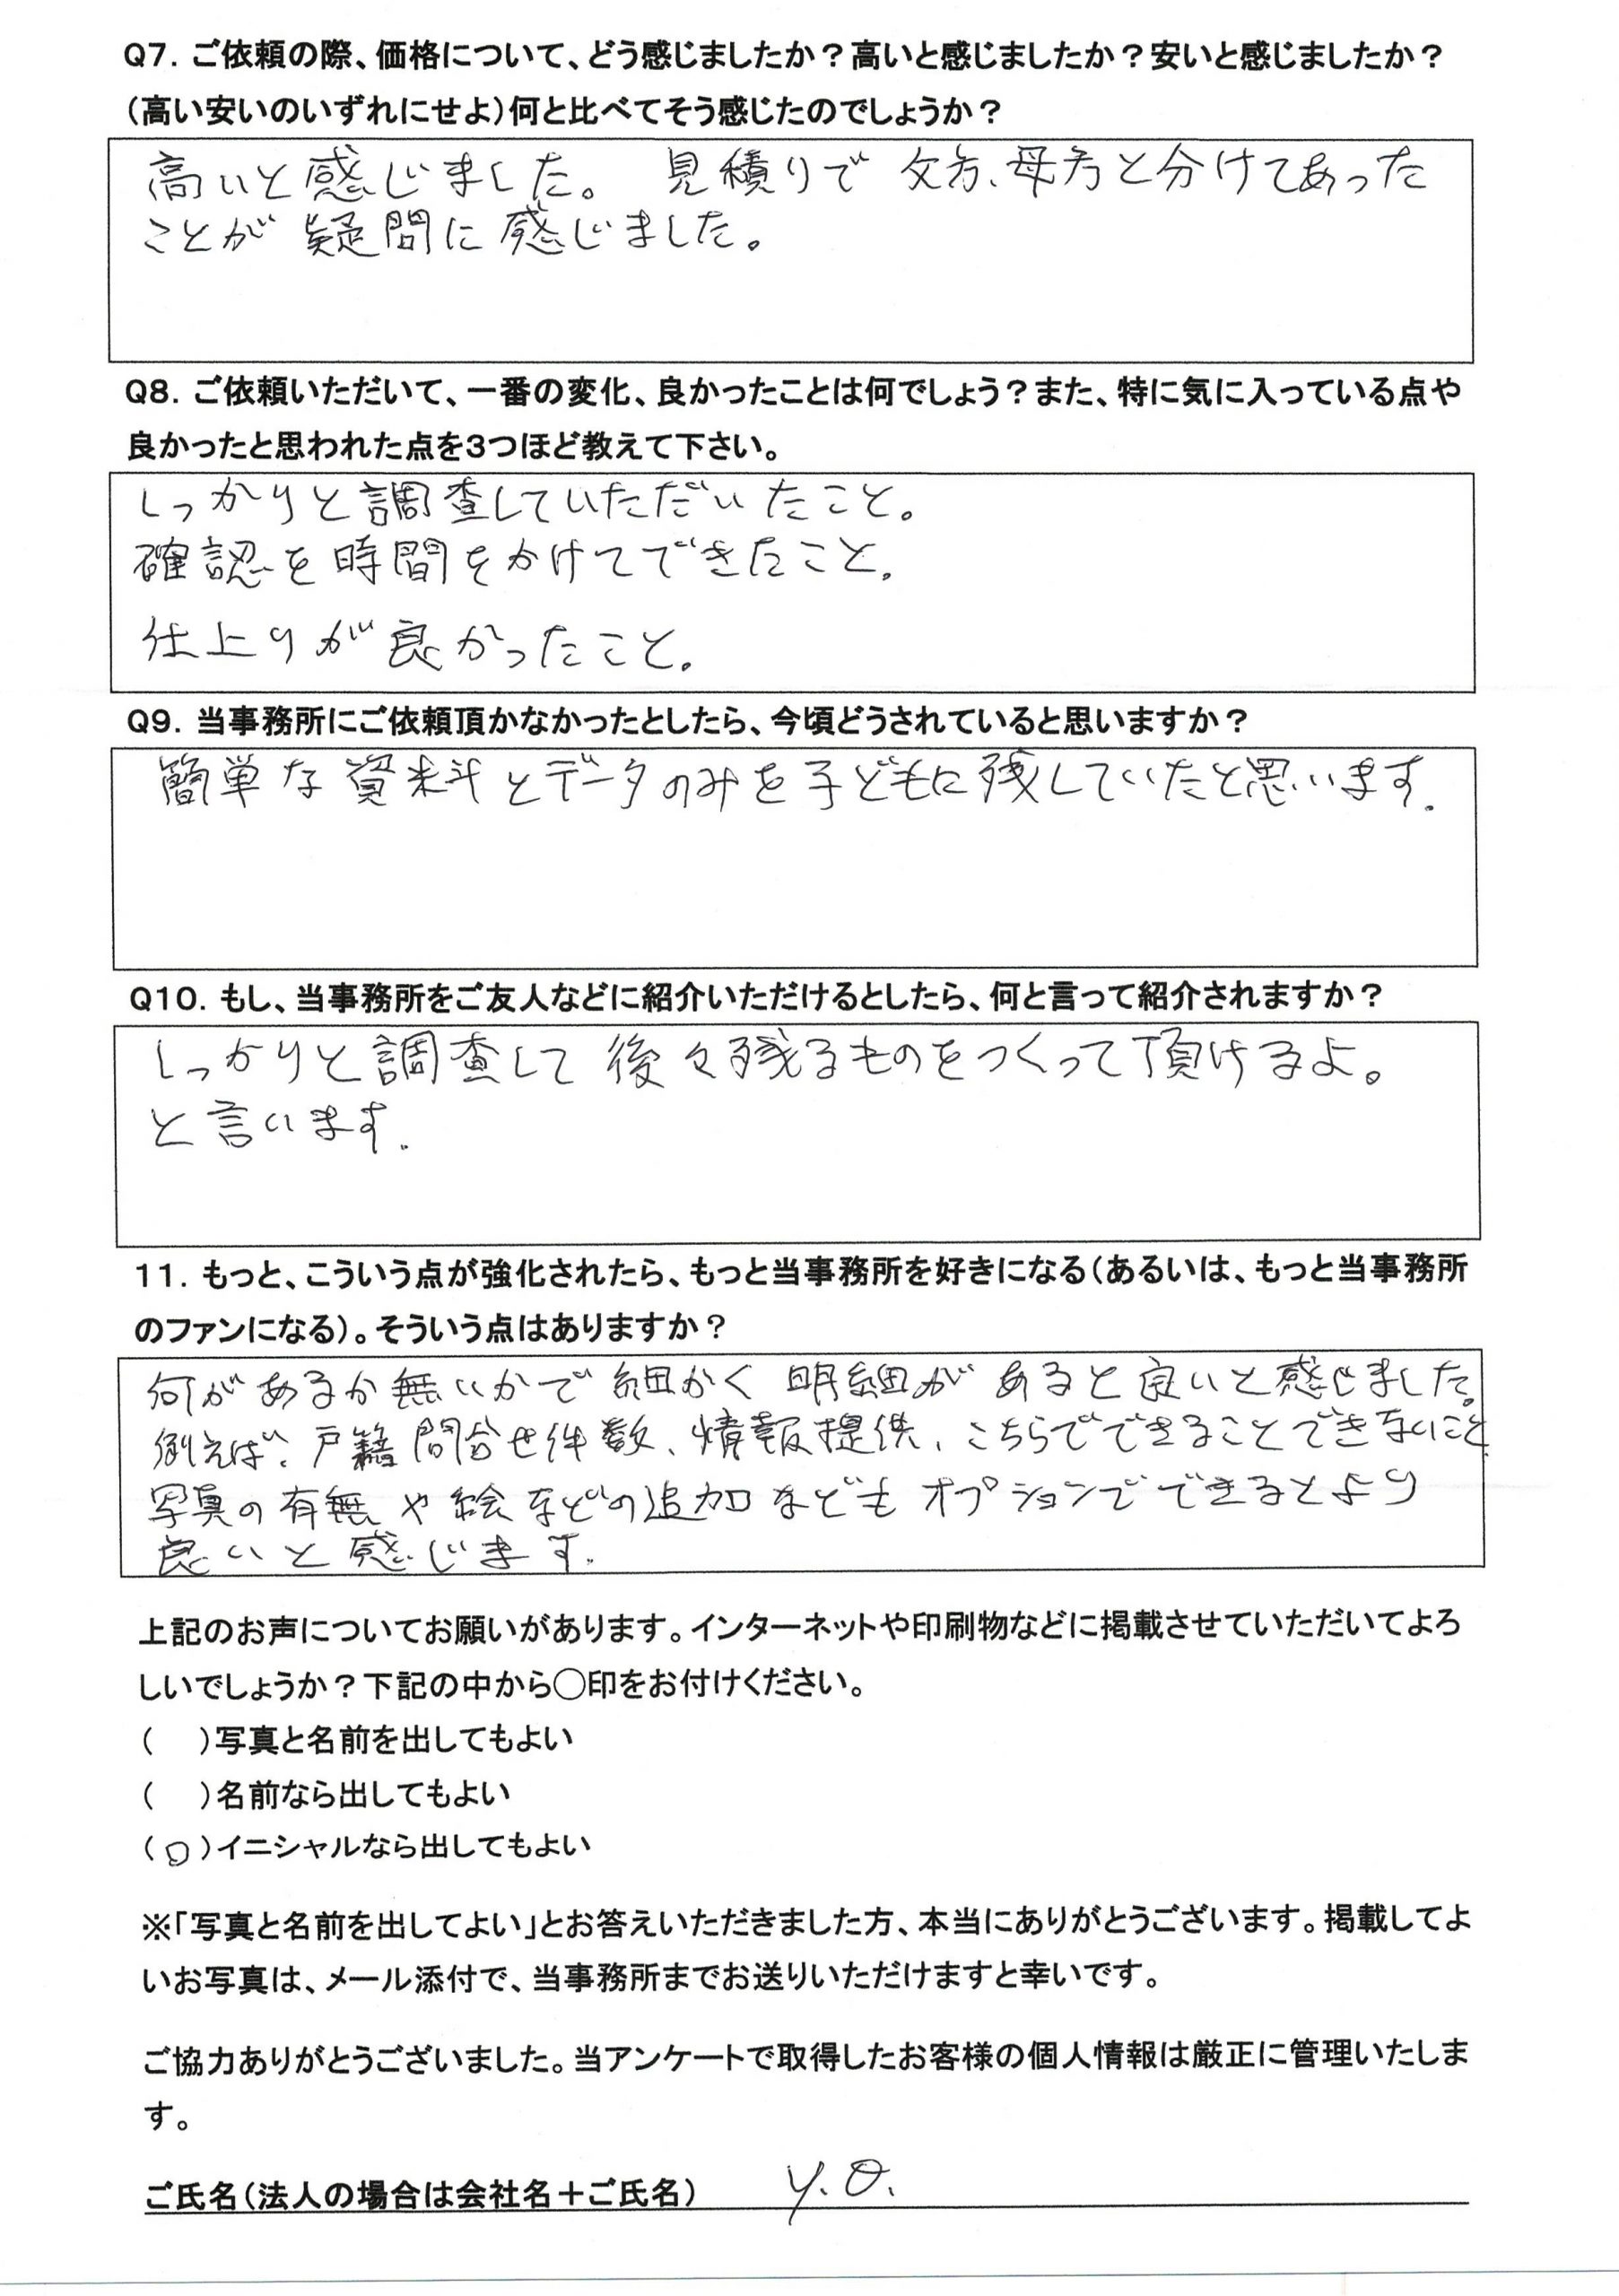 Q7. ご依頼の際、価格について、どう感じましたか？高いと感じましたか？安いと感じましたか？
（高い安いのいずれにせよ）何と比べてそう感じたのでしょうか？
高いと感じました。 見積りで 父方、母方と分けてあった
ことが 疑問に 感じました。
Q8. ご依頼いただいて、一番の変化、良かったことは何でしょう？また、特に気に入っている点や
良かったと思われた点を3つほど教えて下さい。
しっかりと調査していただいたこと。
確認を時間をかけてできたこと。
仕上りが良かったこと。
Q9. 当事務所にご依頼頂かなかったとしたら、今頃どうされていると思いますか？
簡単な資料とデータのみを子どもに残していたと思います。
Q10. もし、当事務所をご友人などに紹介いただけるとしたら、何と言って紹介されますか？
しっかりと調査して後々残るものをつくって頂けるよ。
と言います。
11. もっと、こういう点が強化されたら、もっと当事務所を好きになる（あるいは、もっと当事務所
のファンになる）。そういう点はありますか？
何があるか無いかで細かく明細があると良いと感じました。
例えば、戸籍問合せ件数、情報提供、こちらでできることできないこと
写真の有無や絵などの追加などもオプションでできるとより
良いと感じます。
上記のお声についてお願いがあります。インターネットや印刷物などに掲載させていただいてよろ
しいでしょうか？下記の中から○印をお付けください。
（　）写真と名前を出してもよい
（　）名前なら出してもよい
（○）イニシャルなら出してもよい
※「写真と名前を出してよい」とお答えいただきました方、本当にありがとうございます。掲載してよ
いお写真は、メール添付で、当事務所までお送りいただけますと幸いです。
ご協力ありがとうございました。当アンケートで取得したお客様の個人情報は厳正に管理いたしま
す。
ご氏名（法人の場合は会社名＋ご氏名） Y.O.